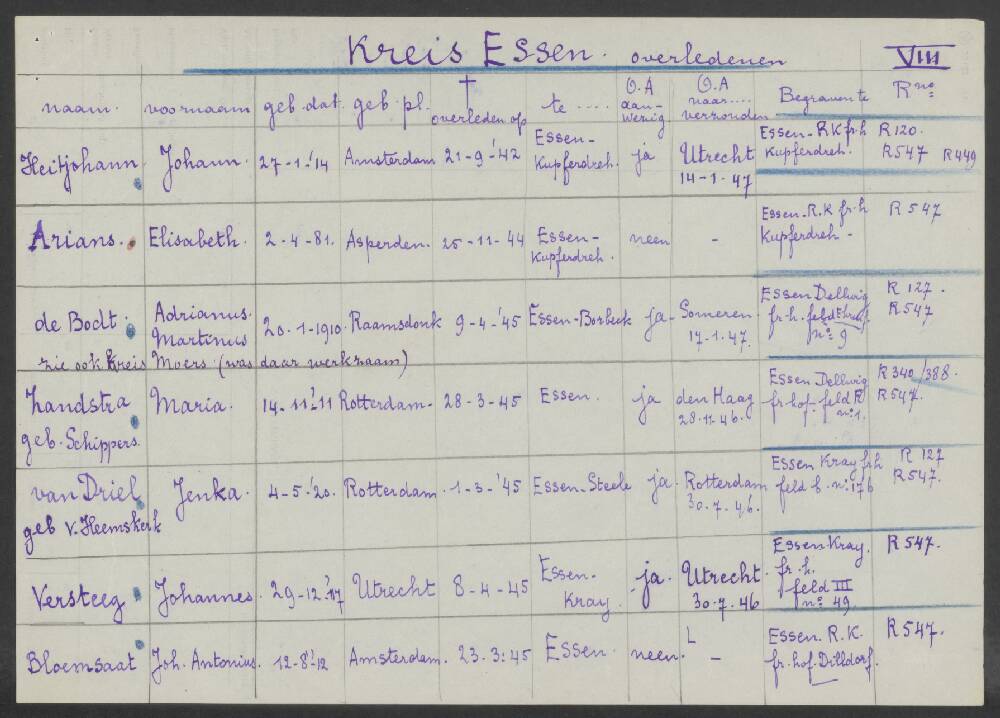 Kreis Essen. overledenen VIII
naam. voornaam geb. dat. geb. pl. † overleden op te .... O.A aan-wezig O.A naar.... verzonden Begraven te R no.
Heitjohann Johann. 27-1-'14 Amsterdam 21-9-'42 Essen-Kupferdreh. ja Utrecht 14-1-47 Essen-RK fr.h Kupferdreh. R120. R547 R449
Arians. Elisabeth. 2-4-81. Asperden. 25-11-44 Essen-Kupferdreh. neen - Essen-R.K fr.h Kupferdreh- R547
de Bodt. Adrianus. Martinus 20-1-1910. Raamsdonk 9-4-'45 Essen-Borbeck ja- Someren 17-1-47. Essen Dellwig fr.h. feld no 9 R127. R547
zie ook Kreis Moers (was daar werkzaam)
Zandstra geb. Schippers. Maria. 14-11-'11 Rotterdam- 28-3-45 Essen. ja den Haag 28-11-46. Essen Dellwig fr.hof- feld R no 1. R340/388. R547.
van Driel geb v. Heemskerk Jenka. 4-5-'20. Rotterdam. 1-3-'45 Essen-Steele ja. Rotterdam 30.7.46. Essen Kray fr.h feld b. no 176 R127 R547.
Versteeg Johannes. 29-12-'17 Utrecht 8-4-45 Essen-Kray. ja. Utrecht. 30.7.46 Essen Kray. fr.h. feld III no 49. R547.
Bloemsaat Joh. Antonius. 12-8-'12 Amsterdam. 23.3.45 Essen. neen. L - Essen. R.K. fr.hof. Dilldorf. R547.